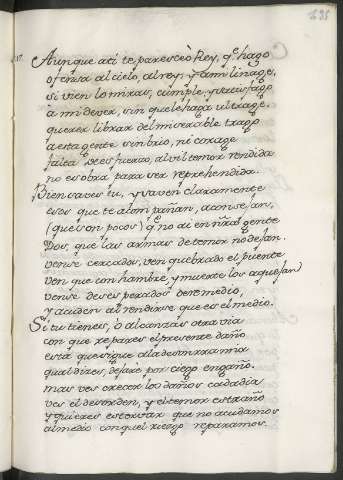 Aunque ati te paresceò Rey, q.e hago
ofensa al cielo, al rey, y a mi linage,
si vien lo miras, cumple, y satisfago
à mi dever, sin que le haga ultrage.
querer librar del miserable trago
a esta gente sin brio, ni corage
falta de esfuerzo, al vil temor rendida
no es obra para ser reprehendida.
Bien saves tu, y saven claramente
esos que te acompañan, aconsejan,
(que son pocos) q.e no ai en ñra gente
Dos, que las armas de temor no dejan.
vense cercados, ven quebrado el puente
ven que con hambre, y muerte los aquejan
vense desesperados de remedio,
y acuden al rendirse que es el medio.
Si tu tienes, ò alcanzas otra via
con que repares el presente daño
esta que sigue a la desmirra mia
qual dizes, dejare por ciego engaño.
mas ves crecer los daños cada dia
ves el desorden, y el temor estraño
y quieres estorvar que no acudamos
al medio con que el riesgo reparamos.